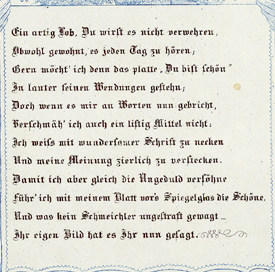 Ein artig Lob, Du wirst es nicht verwehren,
Obwohl gewohnt, es jeden Tag zu hören;
Gern möcht' ich denn das platte „Du bist schön“
In lauter feinen Wendungen gestehn;
Doch wenn es mir an Worten nun gebricht,
Verschmäh' ich auch ein listig Mittel nicht.
Ich weiß mit wundersamer Schrift zu necken
Und meine Meinung zierlich zu verstecken.
Damit ich aber gleich die Ungeduld versöhne
Führ' ich mit meinem Blatt vor's Spiegelglas die Schöne,
Und was kein Schmeichler ungestraft gewagt _
Ihr eigen Bild hat es Ihr nun gesagt.